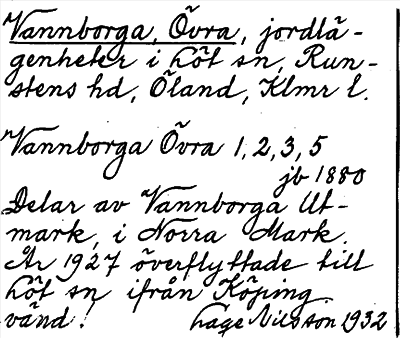 Vannborga, Övra, jordlä-
genheter i höt sn, Run-
stens hd, Öland, Klmr l.
Vannborga Övra 1, 2, 3, 5
jb 1880
Delar av Vannborga Ut-
mark, i Norra Mark.
År 1927 överflyttade till
höt sn ifrån Köping.
vänd! Lage Nilsson 1932